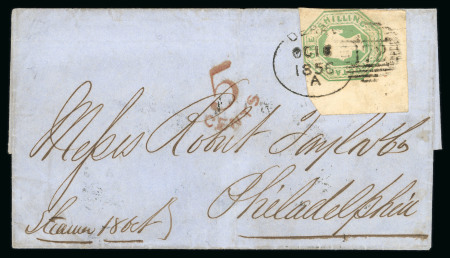 SHILLING
OC 18
1856
A
5
CENTS
Messrs Robert Taylor & Co
Philadelphia
Steamer 18 Oct